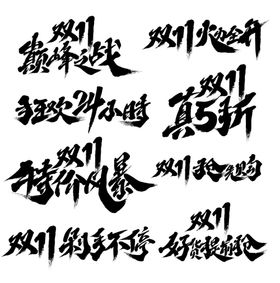 双11
巅峰之战
双11火力全开
狂欢24小时
双11
真5折
双11
特价风暴
双11抢先购
双11剁手不停
双11
好货提前抢